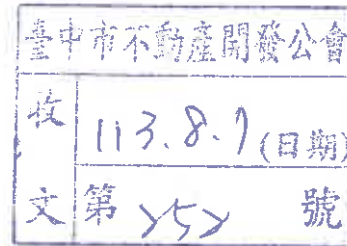 臺中市不動產開發公會
收 113.8.7(日期)
文 第 252 號